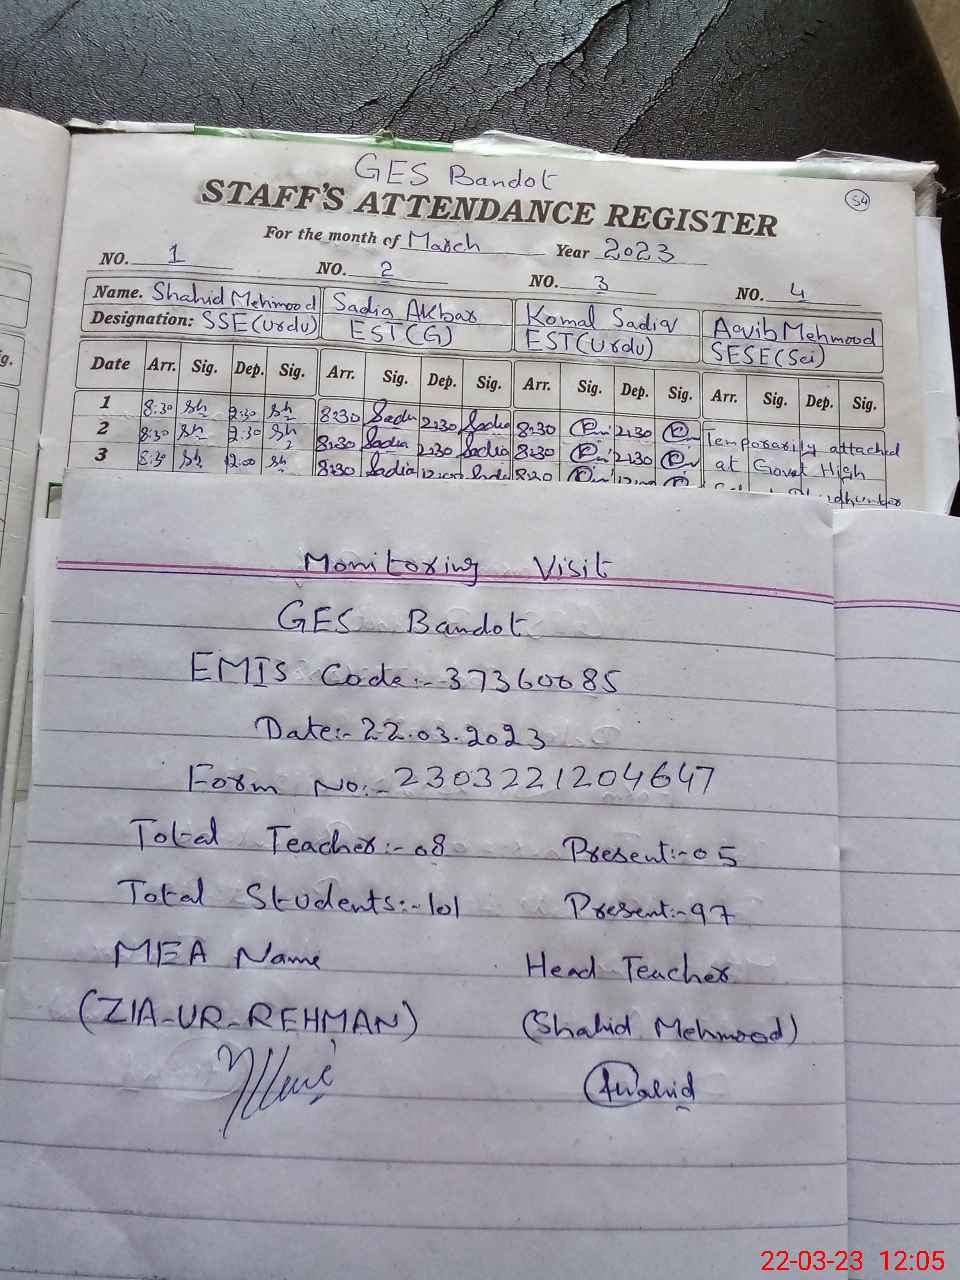 GES Bandot
54
STAFF'S ATTENDANCE REGISTER
For the month of March Year 2023
NO. 1 NO. 2 NO. 3 NO. 4
Name. Shahid Mehmood Sadia Akbar Komal Sadiq Aqib Mehmood
Designation: SSE(Urdu) EST(G) EST(Urdu) SESE(Sci)
Date Arr. Sig. Dep. Sig. Arr. Sig. Dep. Sig. Arr. Sig. Dep. Sig. Arr. Sig. Dep. Sig.
1 8:30 Sh 2:30 Sh 8:30 Sadia 2:30 Sadia 8:30 2:30
2 8:30 Sh 2:30 Sh 8:30 Sadia 2:30 Sadia 8:30 2:30 Temporarily attached
3 8:30 Sh 12:00 Sh 8:30 Sadia 12:00 8:30 12:00 at Govt High
Monitoring Visit
GES Bandot
EMIS Code:- 37360085
Date:- 22.03.2023
Form No:- 2303221204647
Total Teacher:- 08 Present:- 05
Total Students:- 101 Present:- 97
MEA Name Head Teacher
(ZIA-UR-REHMAN) (Shahid Mehmood)
Shahid
22-03-23 12:05